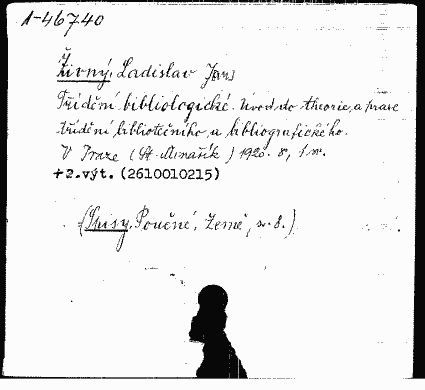 1-46740
Živný, Ladislav Jan
Třídění bibliologické. Úvod do theorie a praxe
třídění bibliotečního a bibliografického.
V Praze (St. Minařík) 1920. 8°, 1 sv.
+2.výt. (2610010215)
(Spisy. Poučné, Země, sv. 8.)